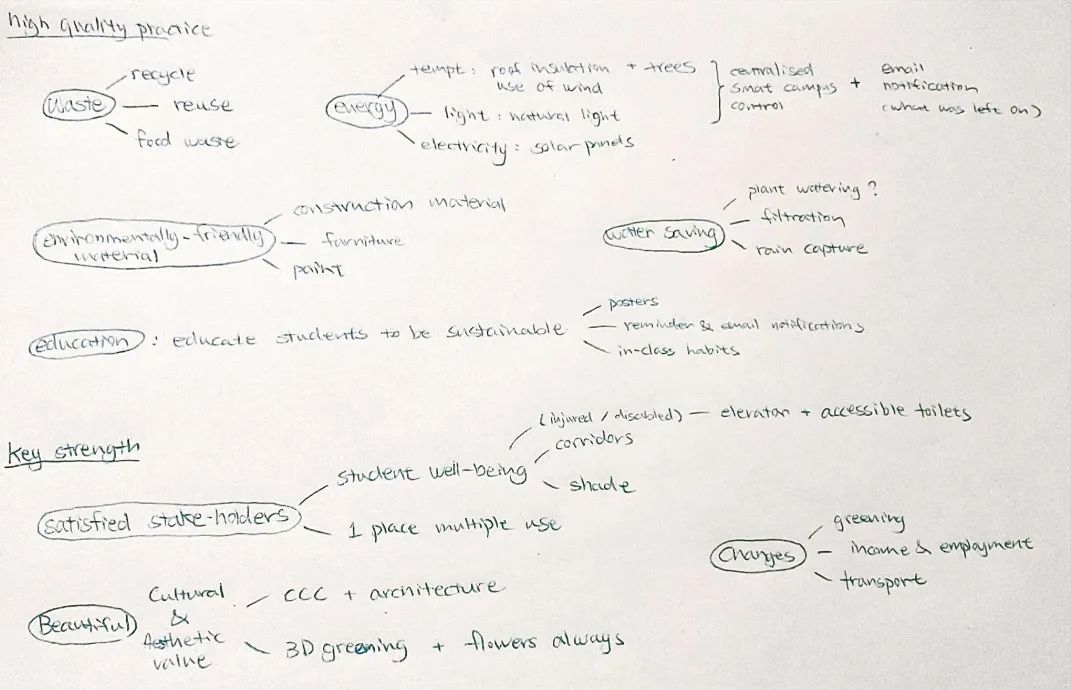 high quality practice
waste
recycle
reuse
food waste
energy
tempt: roof insulation + trees
use of wind
light: natural light
electricity: solar panels
centralised
smat campus
control
+
email
notification
(what was left on)
environmentally-friendly
material
construction material
furniture
paint
water saving
plant watering?
filtration
rain capture
education: educate students to be sustainable
posters
reminder & email notifications
in-class habits
key strength
satisfied stake-holders
student well-being
(injured / disabled) — elevator + accessible toilets
corridors
shade
1 place multiple use
Changes
greening
income & employment
transport
Beautiful
Cultural
&
Aesthetic
value
CCC + architecture
3D greening + flowers always